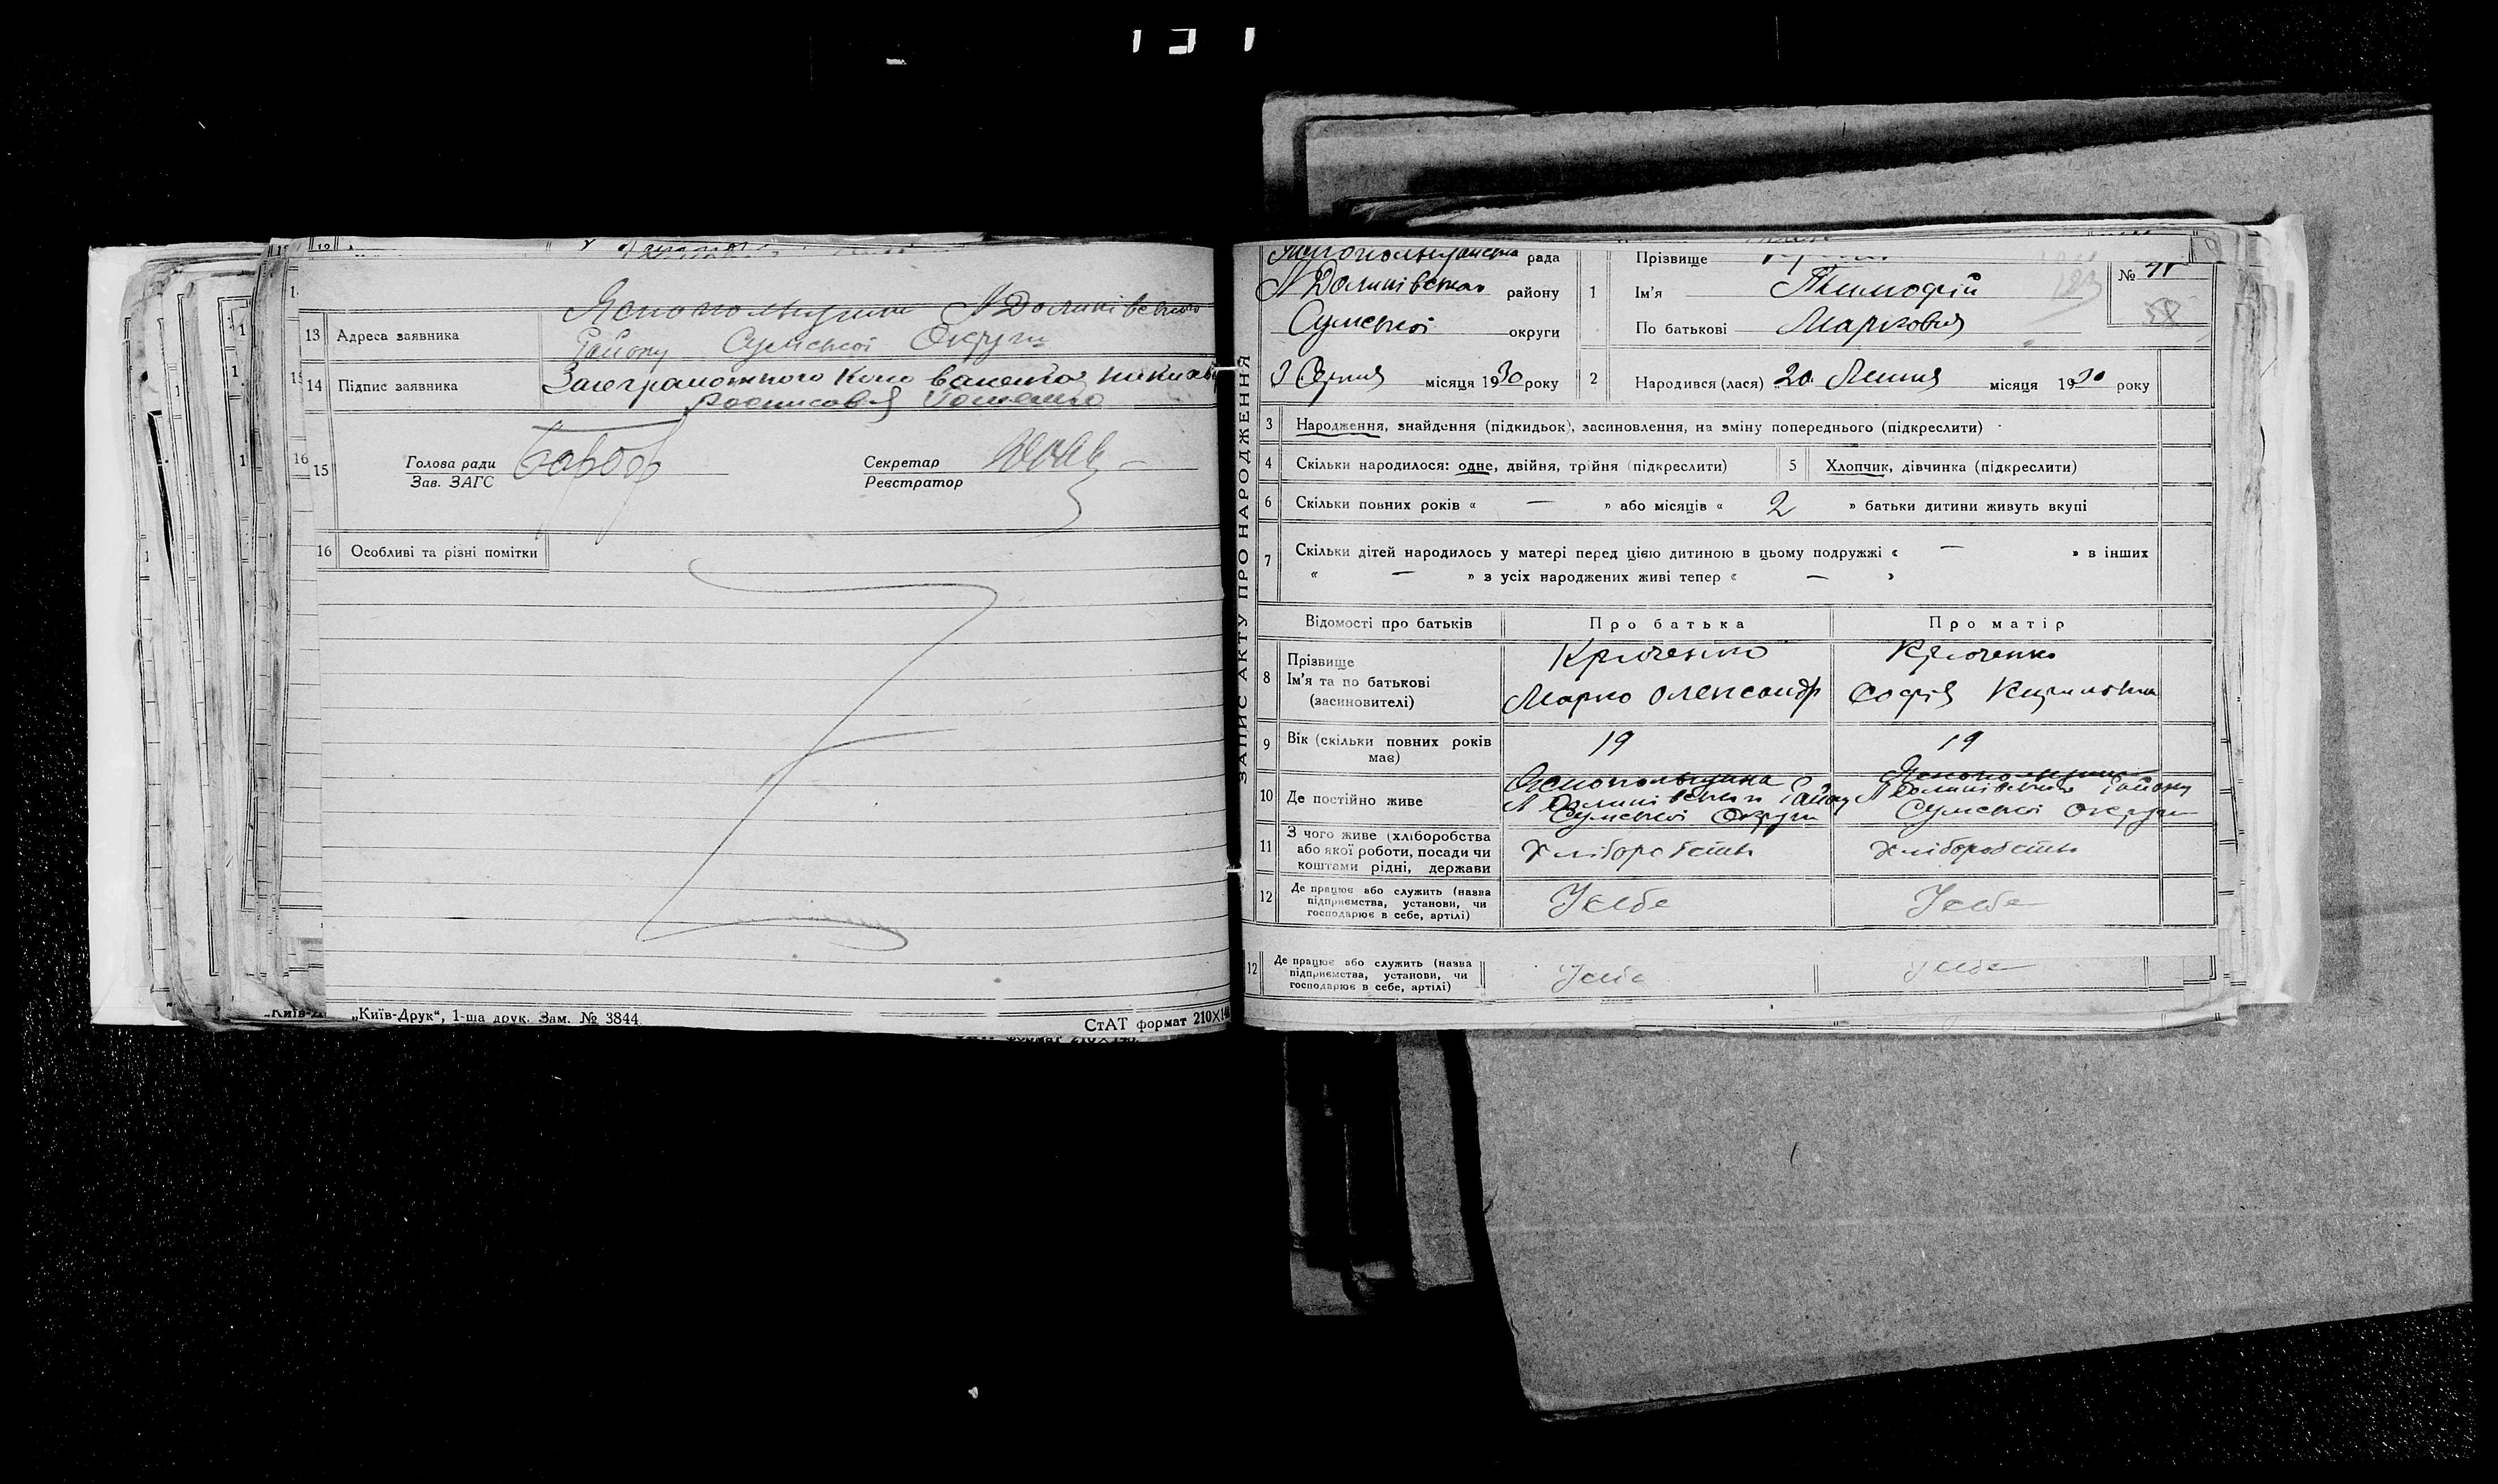 13 Адреса заявника Яснопольщина Л Долинівського
Району Сумської Округи
14 Підпис заявника За неграмотного
росписався
15 Голова ради
Зав. ЗАГС
Секретар
Реєстратор
16 Особливі та різні помітки
„Київ-Друк“, 1-ша друк. Зам. № 3844
СтАТ формат 210×14
ЗАПИС АКТУ ПРО НАРОДЖЕННЯ
рада
Л Долинівського району
Сумської округи
3 Серпня місяця 1930 року
1 Прізвище
Ім'я Тимофій
По батькові Маркович
№ 41
58
2 Народився (лася) 20 Липня місяця 1930 року
3 Народження, знайдення (підкидьок), засиновлення, на зміну попереднього (підкреслити)
4 Скільки народилося: одне, двійня, трійня (підкреслити) 5 Хлопчик, дівчинка (підкреслити)
6 Скільки повних років « — » або місяців « 2 » батьки дитини живуть вкупі
7 Скільки дітей народилось у матері перед цією дитиною в цьому подружжі « — » в інших
« — » з усіх народжених живі тепер « — »
Відомості про батьків Про батька Про матір
8 Прізвище Крюченко Крюченко
Ім'я та по батькові Марко Олександр Софія
(засиновителі)
9 Вік (скільки повних років має) 19 19
10 Де постійно живе Яснопольщина Яснопольщина
Л Долинівського Району Л Долинівського Району
Сумської Округи Сумської Округи
11 З чого живе (хліборобства Хліборобств Хліборобств
або якої роботи, посади чи
коштами рідні, держави
12 Де працює або служить (назва У себе У себе
підприємства, установи, чи
господарює в себе, артілі)
12 Де працює або служить (назва У себе У себе
підприємства, установи, чи
господарює в себе, артілі)